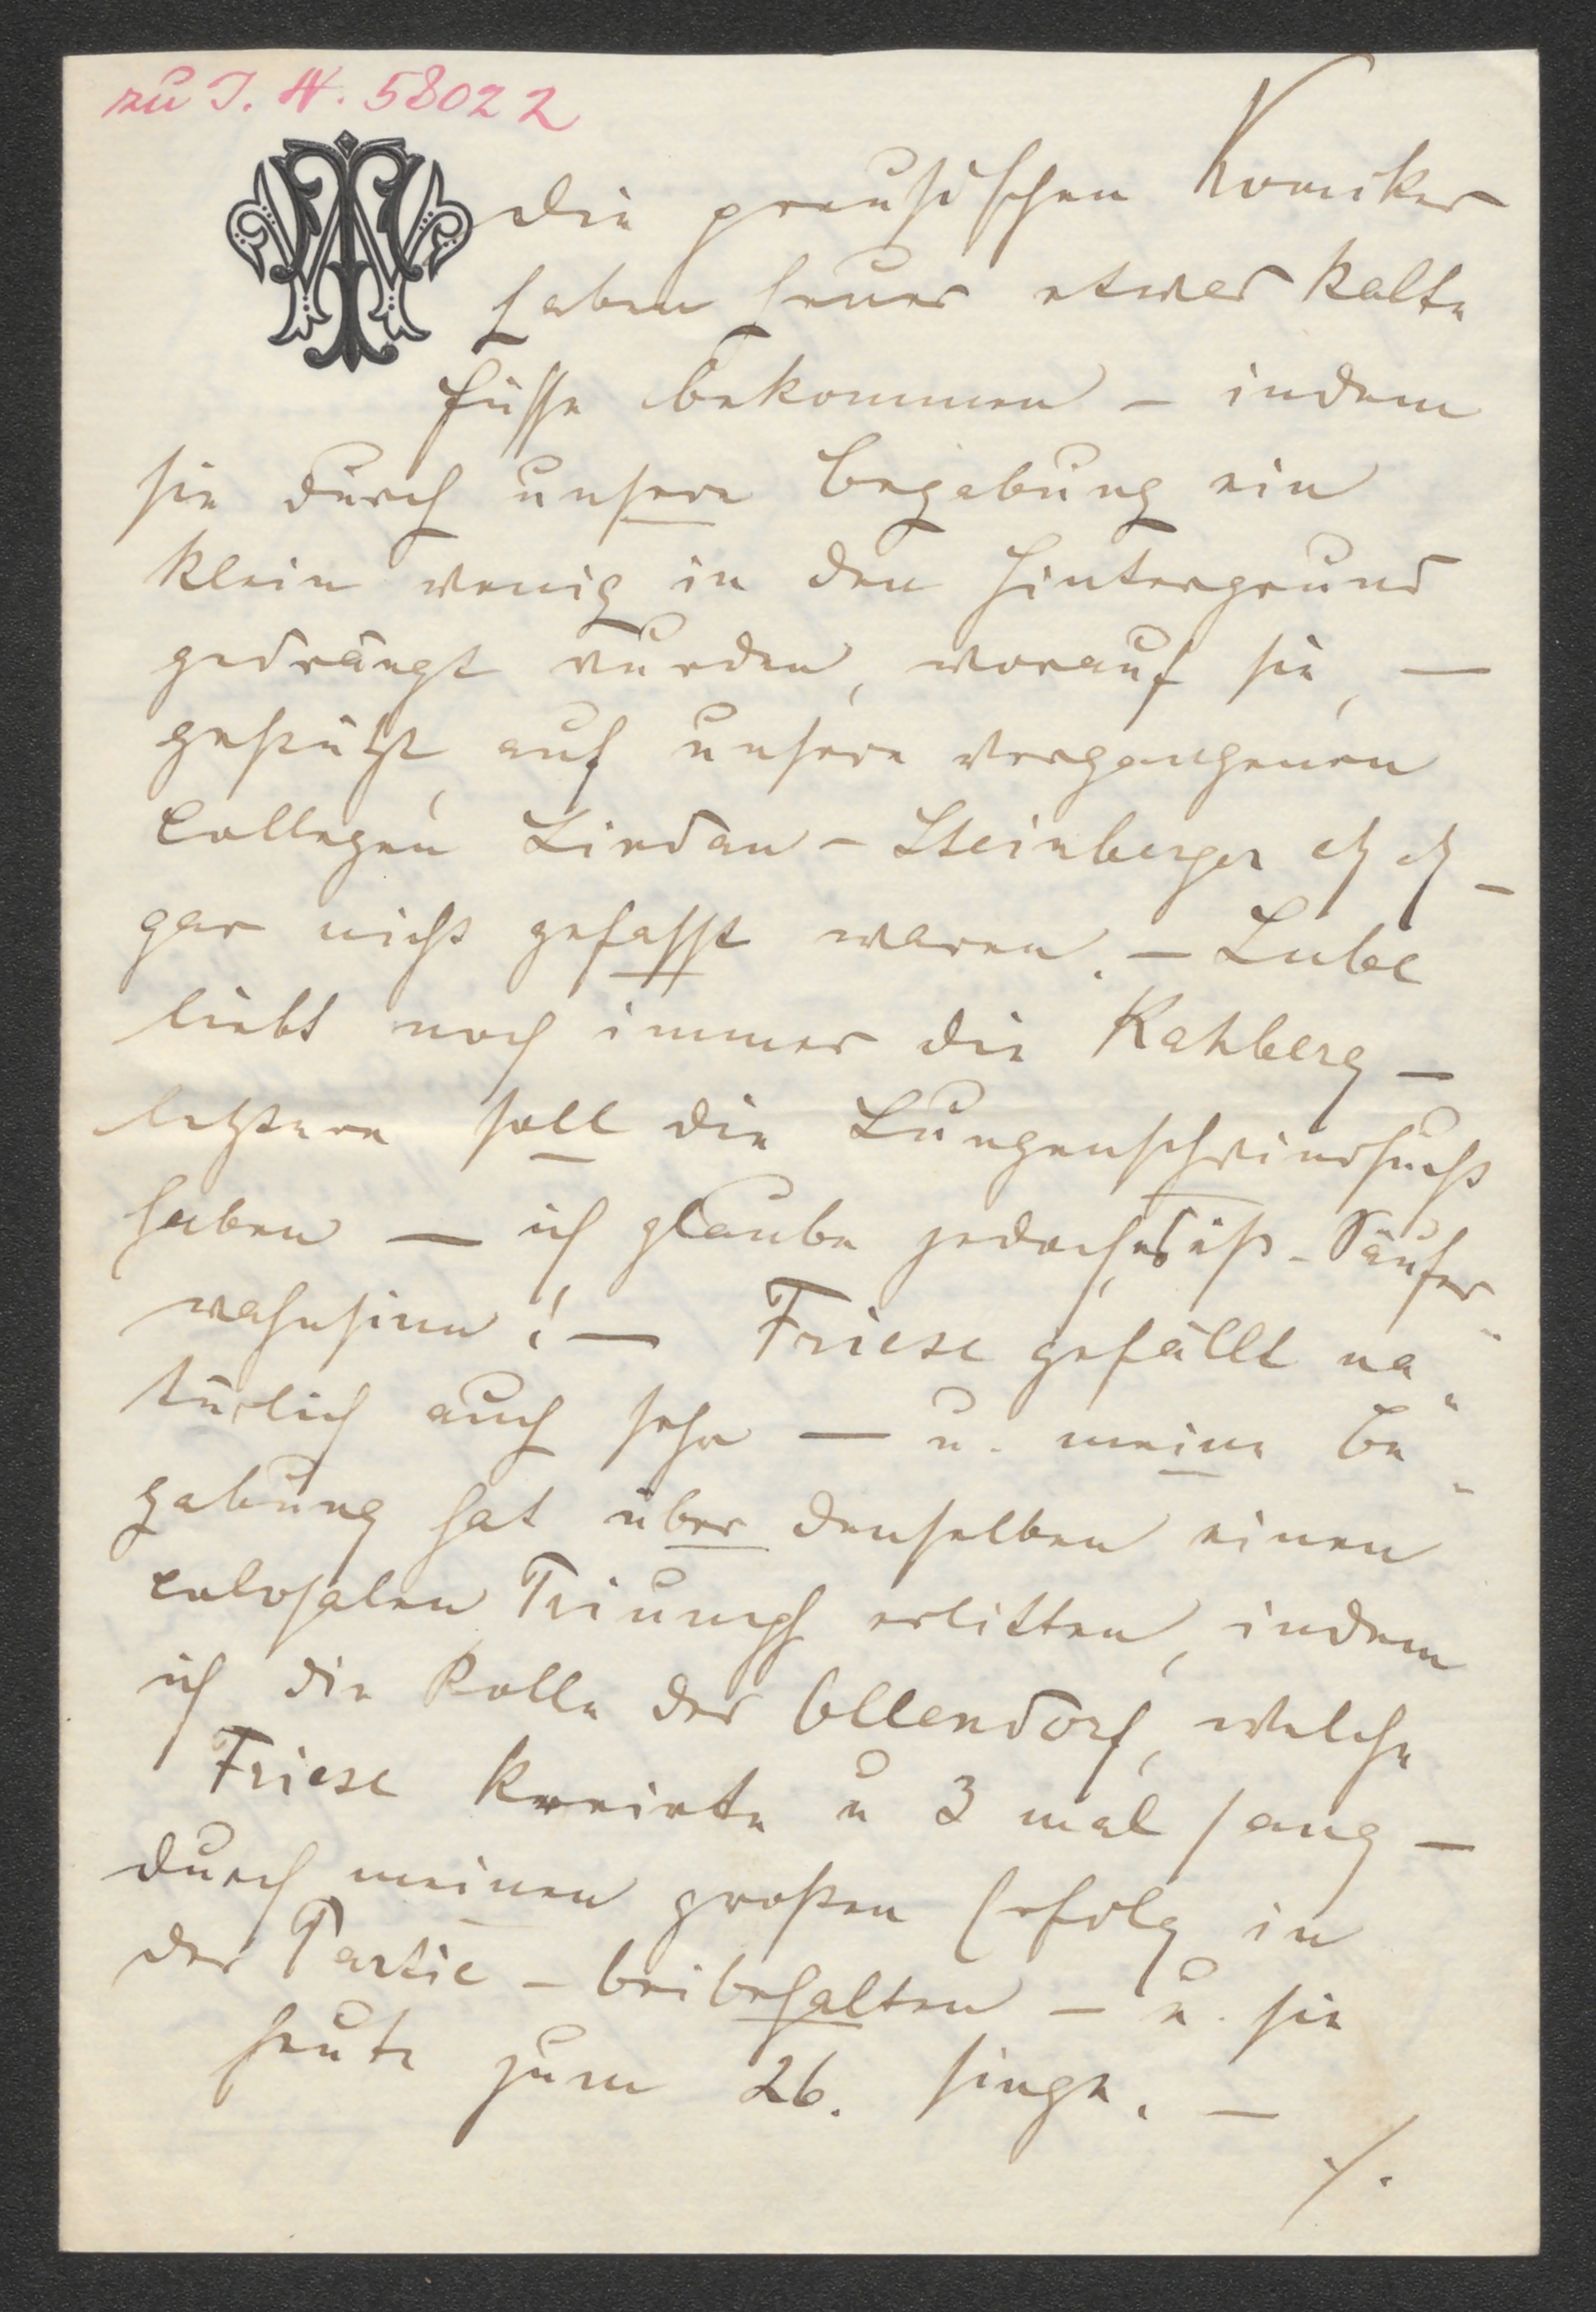 zu J. N. 58022
die preußischen Komiker
haben heuer etwas kalte
Füsse bekommen – indem
sie durch unsere Begabung ein
klein wenig in den Hintergrund
gedrängt wurden, worauf sie, –
gestützt auf unsere vergangenen
Collegen Lindau – Steinberger etz etz –
gar nicht gefasst waren. – Lube
liebt noch immer die Katzberg –
letztere soll die Lungenschwindsucht
haben – ich glaube jedoch, es ist – Säufer-
wahnsinn! – Friese gefällt na-
türlich auch sehr – u. meine Be-
gabung hat über denselben einen
colosalen Triumpf erlitten, indem
ich die Rolle des Ollendorf, welche
Friese kreirte u 3 mal sang –
durch meinen großen Erfolg in
der Partie – beibehalten – u. sie
heute zum 26. singe. –
./.